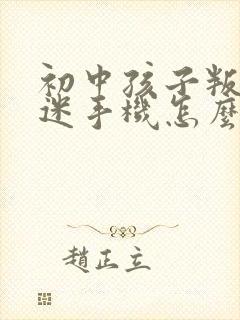 初中孩子叛
迷手機怎麼
趙正立